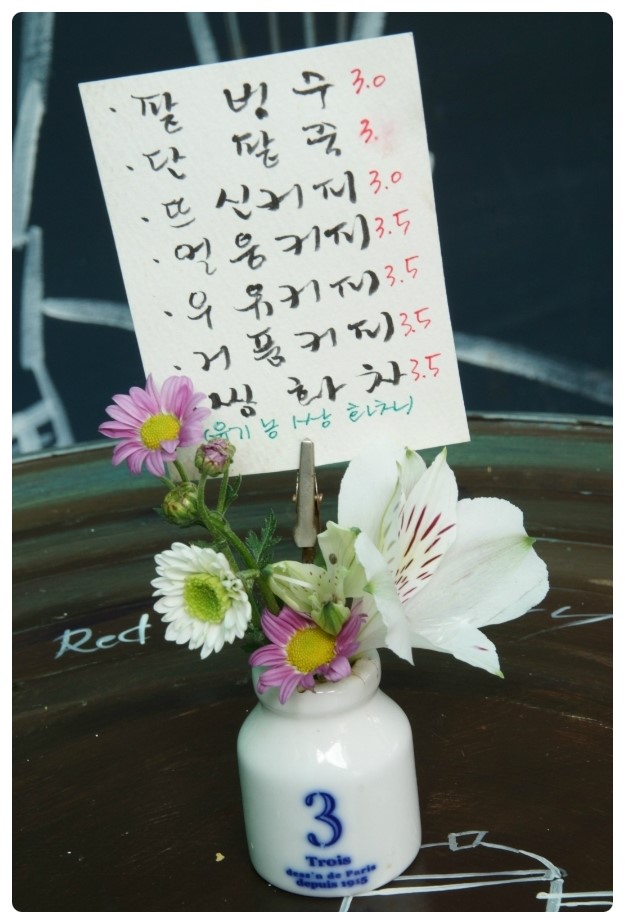 · 팥 빙 수 3.0
· 단 팥 죽 3.
· 뜨 신 커 피 3.0
· 얼 음 커 피 3.5
· 우 유 커 피 3.5
· 거 품 커 피 3.5
쌍 화 차 3.5
(유기농 쌍화차)
Red
3
Trois
dess'n de Paris
depuis 1915